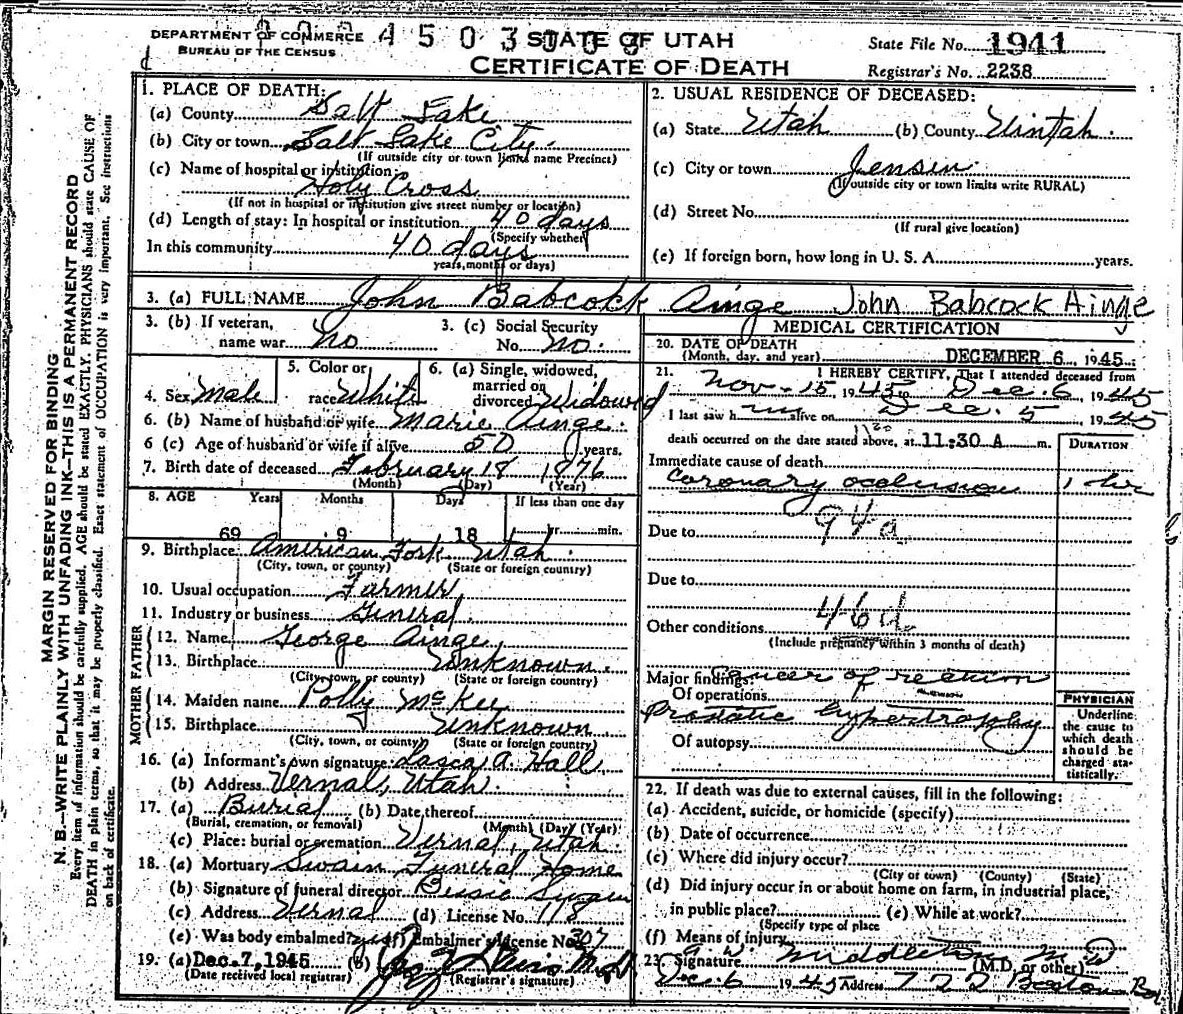 DEPARTMENT OF COMMERCE
BUREAU OF THE CENSUS
STATE OF UTAH
CERTIFICATE OF DEATH
State File No. 1941
Registrar's No. 2238
MARGIN RESERVED FOR BINDING
N. B.—WRITE PLAINLY WITH UNFADING INK—THIS IS A PERMANENT RECORD
Every item of information should be carefully supplied. AGE should be stated EXACTLY. PHYSICIANS should state CAUSE OF
DEATH in plain terms, so that it may be properly classified. Exact statement of OCCUPATION is very important. See instructions
on back of certificate.
1. PLACE OF DEATH:
(a) County Salt Lake
(b) City or town Salt Lake City
(If outside city or town limits name Precinct)
(c) Name of hospital or institution:
Holy Cross
(If not in hospital or institution give street number or location)
(d) Length of stay: In hospital or institution 40 days
(Specify whether
In this community 40 days
years, months or days)
2. USUAL RESIDENCE OF DECEASED:
(a) State Utah (b) County Uintah
(c) City or town Jensin
(If outside city or town limits write RURAL)
(d) Street No.
(If rural give location)
(e) If foreign born, how long in U. S. A. years.
3. (a) FULL NAME John Babcock Ainge John Babcock Ainge
3. (b) If veteran,
name war no
3. (c) Social Security
No. no.
4. Sex Male
5. Color or
race White
6. (a) Single, widowed,
married or
divorced Widowed
6. (b) Name of husband or wife Marie Ainge
6 (c) Age of husband or wife if alive 50 years.
7. Birth date of deceased February 18 1876
(Month) (Day) (Year)
8. AGE Years Months Days If less than one day
69 9 18 hr. min.
9. Birthplace American Fork Utah
(City, town, or county) (State or foreign country)
10. Usual occupation Farmer
11. Industry or business General
FATHER
12. Name George Ainge
13. Birthplace Unknown
(City, town, or county) (State or foreign country)
MOTHER
14. Maiden name Polly McKee
15. Birthplace Unknown
(City, town, or county) (State or foreign country)
16. (a) Informant's own signature Lasca A. Hall
(b) Address Vernal, Utah.
17. (a) Burial (b) Date thereof
(Burial, cremation, or removal) (Month) (Day) (Year)
(c) Place: burial or cremation Vernal, Utah.
18. (a) Mortuary Swain Funeral Home
(b) Signature of funeral director Bessie Swain
(c) Address Vernal (d) License No. 118
(e) Was body embalmed? yes (f) Embalmer's License No. 307
19. (a) Dec. 7, 1945 (b)
(Date received local registrar) (Registrar's signature)
MEDICAL CERTIFICATION
20. DATE OF DEATH
(Month, day, and year) DECEMBER 6, 1945
21. I HEREBY CERTIFY, That I attended deceased from
Nov - 15, 1945 to Dec. 6, 1945
I last saw h m alive on Dec. 5 1945
death occurred on the date stated above, at 11:30 A m.
DURATION
Immediate cause of death
Coronary occlusion 1 hr
Due to 94a
Due to
46d
Other conditions
(Include pregnancy within 3 months of death)
Major findings: Cancer of rectum
Of operations
Prostatic hypertrophy
Of autopsy
PHYSICIAN
Underline
the cause to
which death
should be
charged sta-
tistically.
22. If death was due to external causes, fill in the following:
(a) Accident, suicide, or homicide (specify)
(b) Date of occurrence
(c) Where did injury occur?
(City or town) (County) (State)
(d) Did injury occur in or about home on farm, in industrial place,
in public place? (e) While at work?
(Specify type of place
(f) Means of injury
23. Signature Middleton M D
(M.D. or other)
Dec. 6 1945 Address 722 Boston